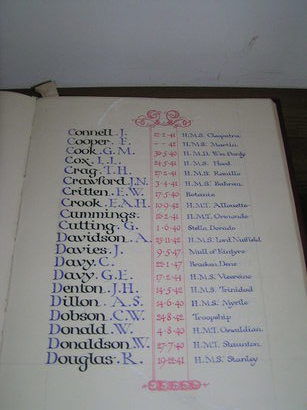 Connell. J. 12-2-41 H.M.S. Cleopatra
Cooper. F. - - 41 H.M.S. Martin
Cook. G. M. 30-5-40 H.M.D.
Cox. L. L. 24-5-41 H.M.S. Hood
Crag. T. H. H.M.S.
Crawford. J.N. 3-4-41 H.M.S. Bahram
Critten. E. W. 17-5-40 Botanic
Crook. E.A.H. H.M.T. Allouette
Cummings. H.M.T. Ormonde
Cutting. G. 1-6-40 Stella Dorado
Davidson. A. H.M.S. Lord Nuffield
Davies. J. 9-5-47 Mull of Kintyre
Davy. C. 22-1-47
Davy. G. E. H.M.S.
Denton. J.H. 14-5-42 H.M.S. Trinidad
Dillon. A. S. 14-6-40 H.M.S. Myrtle
Dobson. C.W. 24-8-42 Troopship
Donald. W. 4-8-40 H.M.T. Oswaldian
Donaldson. W. 27-7-40 H.M.T. Staunton
Douglas. R. 19-12-41 H.M.S. Stanley